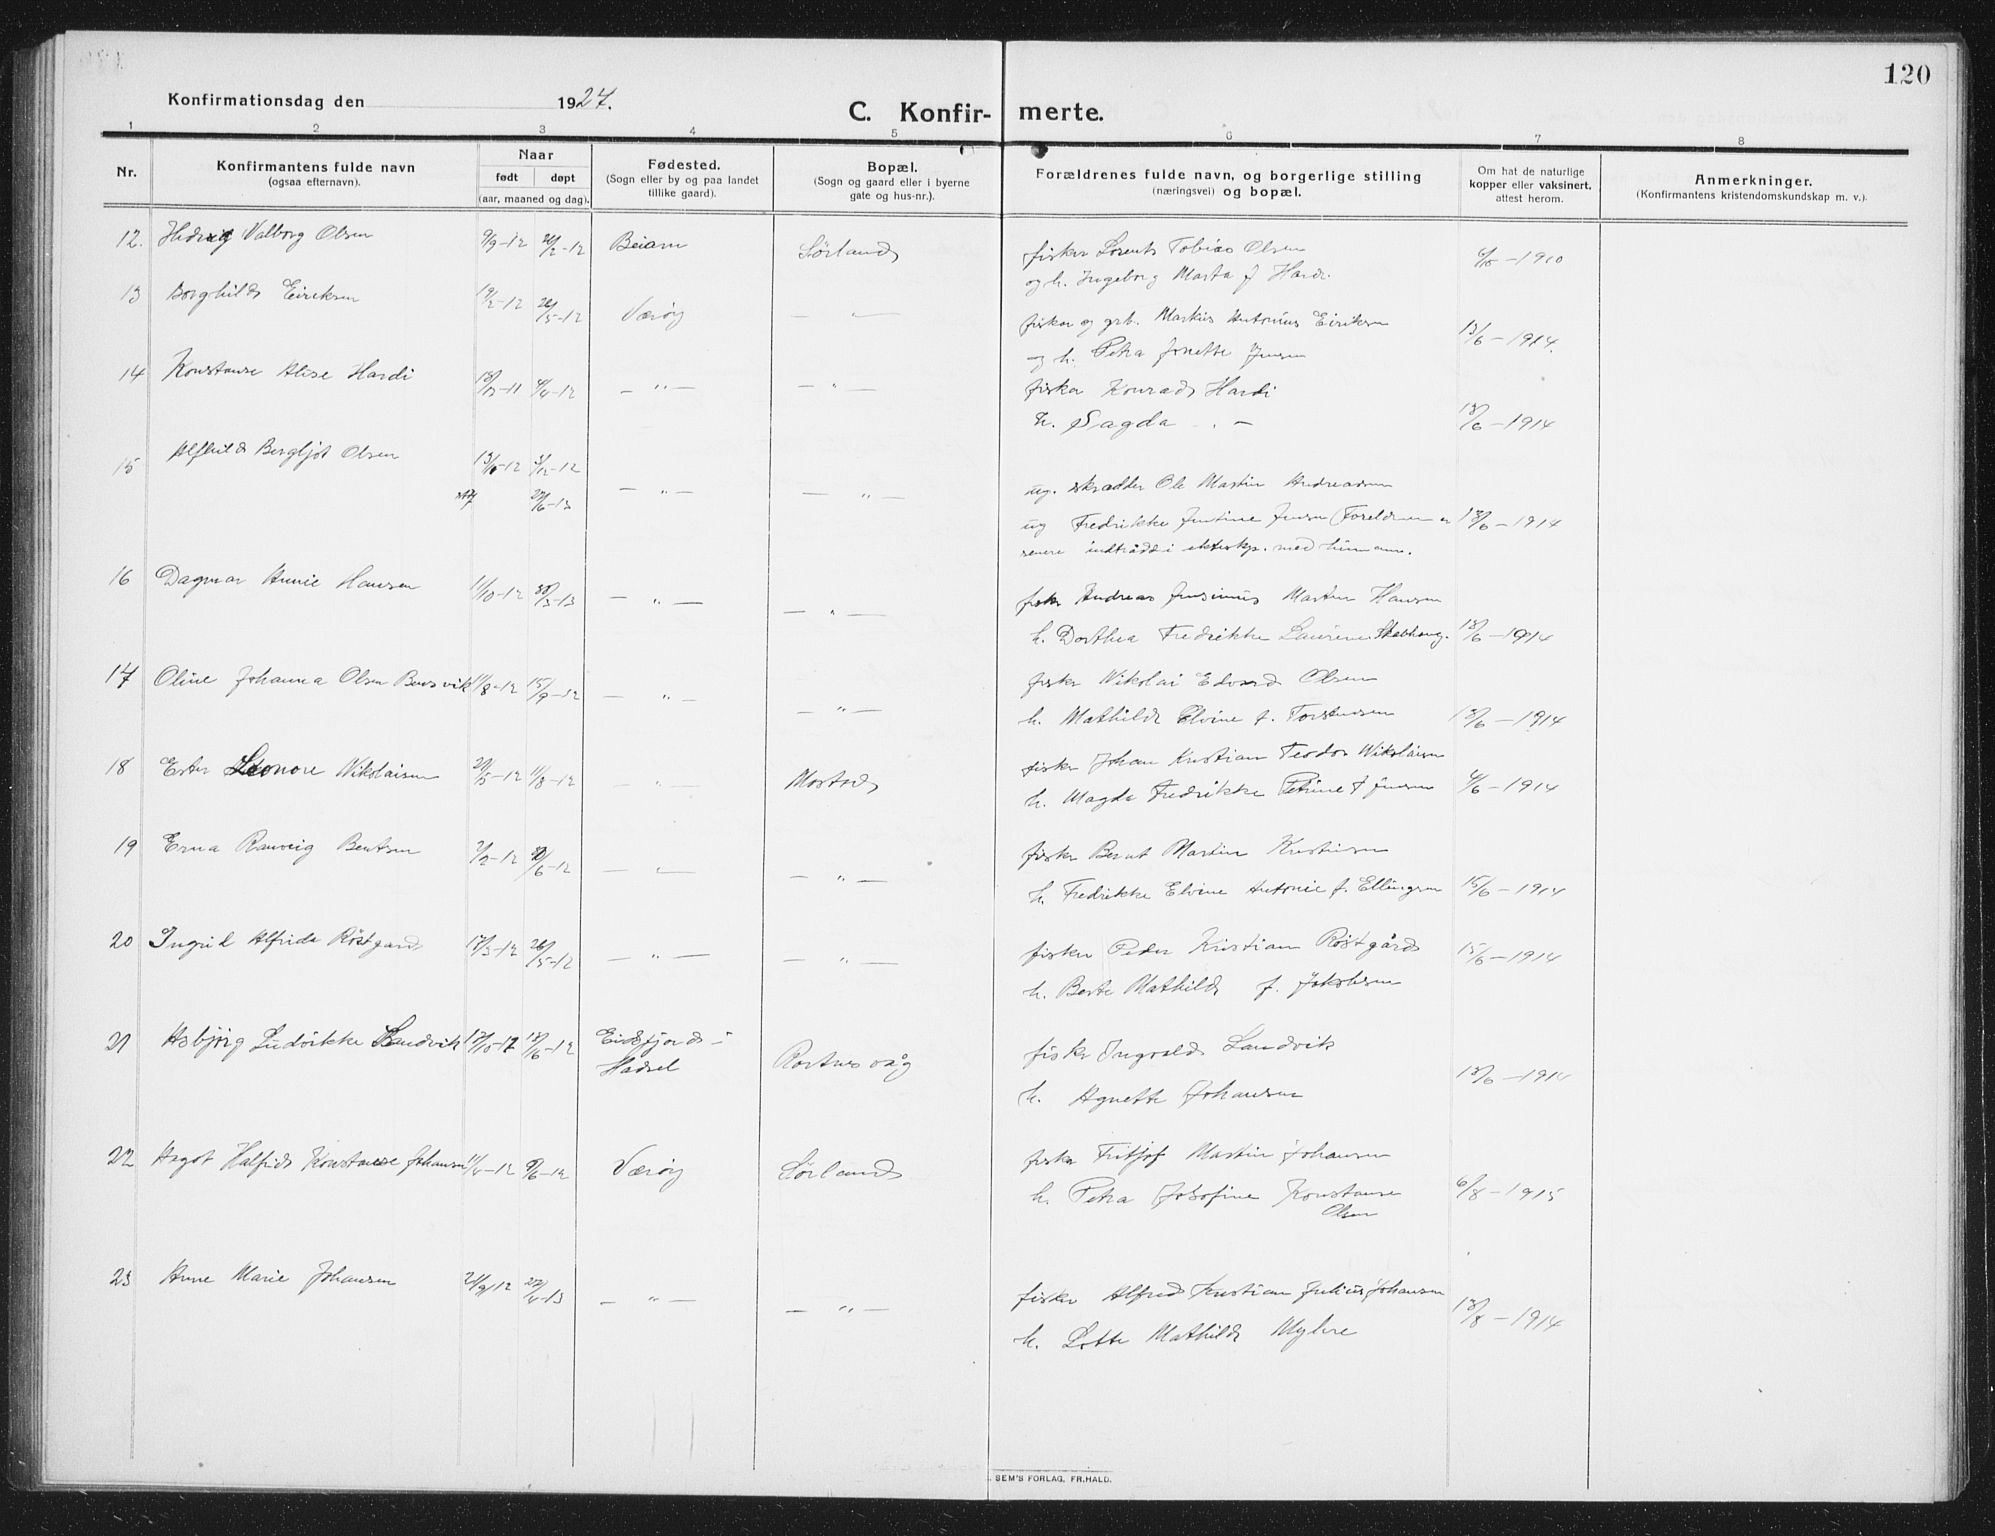 120
Konfirmationsdag den 1927.
C. Konfir- merte.
1 2 3 4 5 6 7 8
Nr.
Konfirmantens fulde navn
(ogsaa efternavn).
Naar
født døpt
(aar, maaned og dag).
Fødested.
(Sogn eller by og paa landet
tillike gaard).
Bopæl.
(Sogn og gaard eller i byerne
gate og hus-nr.).
Forældrenes fulde navn, og borgerlige stilling
(næringsvei) og bopæl.
Om hat de naturlige
kopper eller vaksinert,
attest herom.
Anmerkninger.
(Konfirmantens kristendomskundskap m. v.).
12. Valborg Olsen 9/9-12 -12 Beiarn Sørland fisker Lorents Tobias Olsen -1910
og h. Ingeborg Marta f. Hardi
13 Borghild Eiriksen 19/2-12 26/5-12 Værøy — " — fisker og grb. Markus Antonius Eiriksen 13/6-1914.
og h. Petra Jonette Jensen
14 Konstanse Alise Hardi -11 /4-12 — " — — " — fisker Konrad Hardi
h. Sagda - 13/6-1914
15 Alfhild Bergljot Olsen -12 -12
27/6-13 — " — — " — ug. skrædder Ole Martin Andreassen
ug Fredrikke Jentine Jensen (Foreldrene er 13/6-1914
senere indtrådt i ektesksp. med
16 Dagmar Annie Hansen 11/10-12 30/3-13 — " — — " — fisker Andreas Martin Hansen
h. Dorthea Fredrikke Laurense 13/6-1914
17 Oline Johanna Olsen 11/8-12 15/9-12 — " — — " — fisker Nikolai Edvard Olsen
h. Mathilde Elvine f. Torstensen 13/6-1914
18 Ester Leonore Nikolaisen 29/5-12 11/8-12 — " — Mostad fisker Johan Kristian Teodor Nikolaisen
h. Magda Fredrikke Petrine f Jensen /6-1914
19 Erna Ranveig Bentsen 2/2-12 /6-12 — " — — " — fisker Bernt Martin Kristiansen
h. Fredrikke Elvine Antonie f. Ellingsen 15/6-1914
20 Ingrid Alfrida Röstgard 17/3-12 26/5-12 — " — — " — fisker Peder Kristian Röstgård 15/6-1914
h. Berte Mathilde f. Jakobsen
21 Asbjörg Ludvikke Sandvik 13/6-12 Eidsfjord i
Hadsel Røstnesvåg fisker Ingvald Sandvik
h. Agnette Johansen 13/6-1914
22 Aagot Halfrid Konstanse Johansen 11/4-12 9/6-12 Værøy Sørland fisker Fritjof Martin Johansen
h. Petra Josefine Konstanse 6/8-1915
Olsen
23 Anne Marie Johansen 21/9-12 27/4-13 — " — — " — fisker Alfred Kristian Julius Johansen 13/8-1914
h. Lotte Mathilde Myhre
SEM'S FORLAG, FR.HALD.